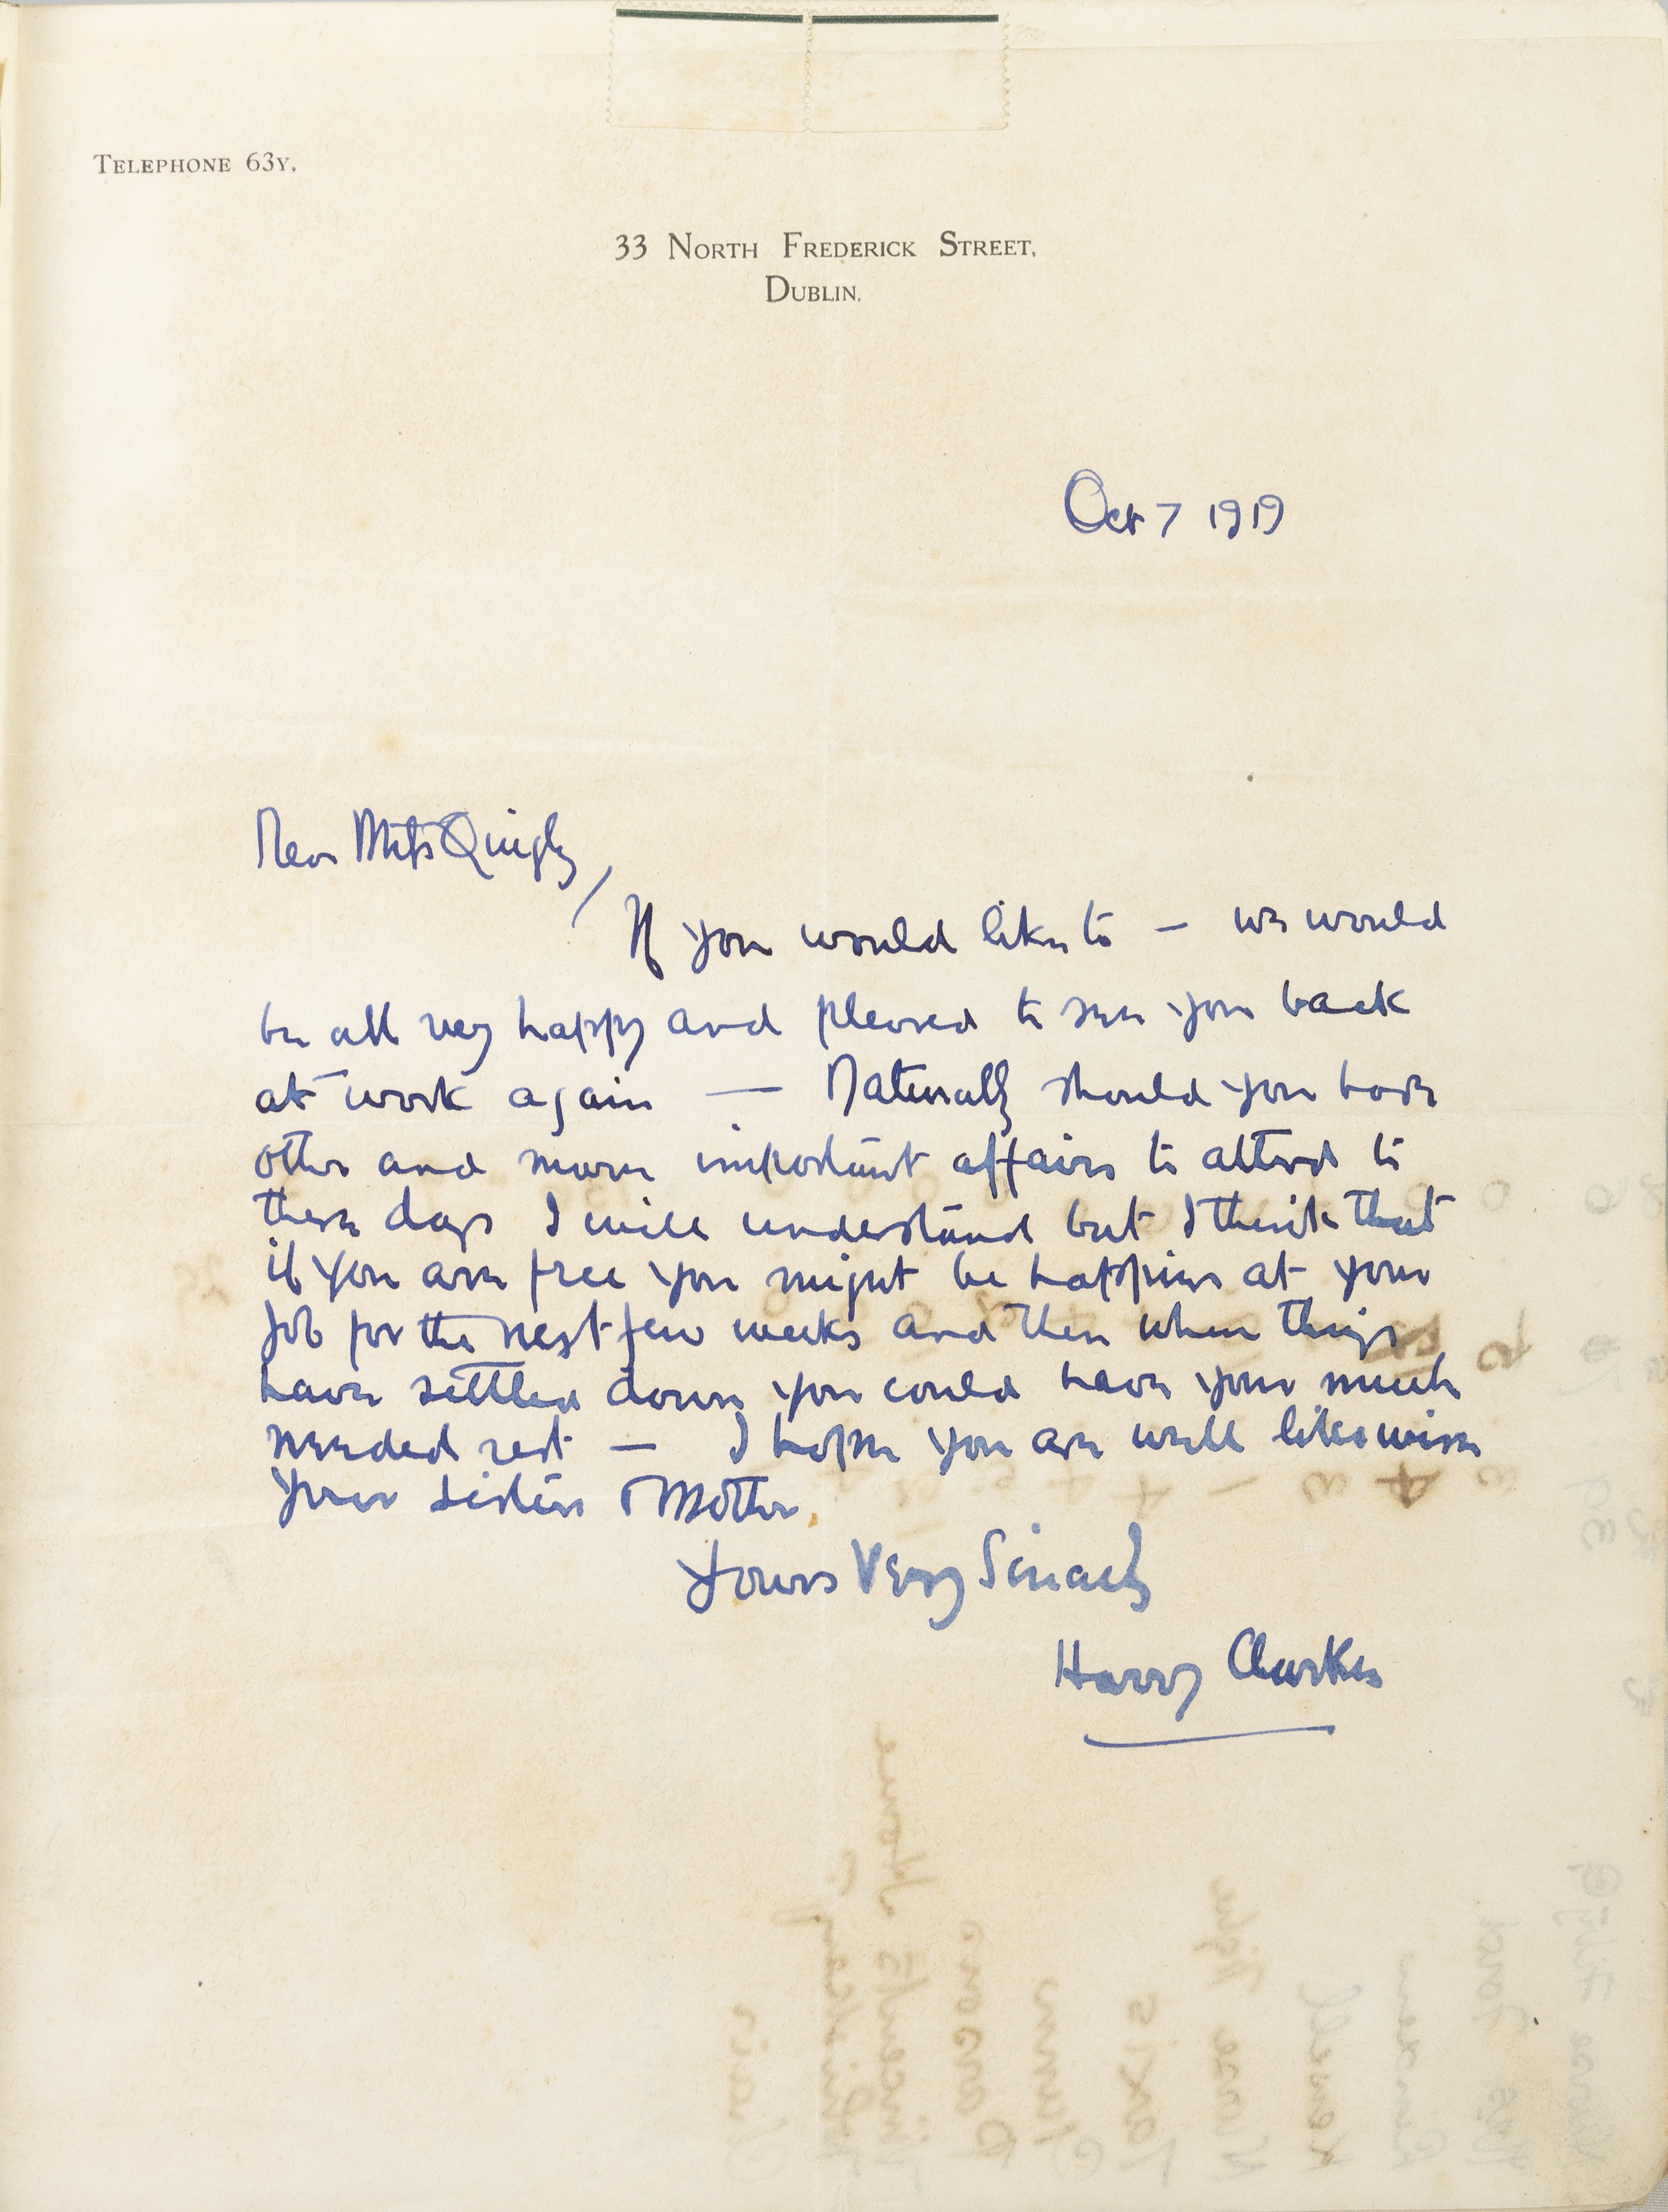 TELEPHONE 63Y.
33 NORTH FREDERICK STREET,
DUBLIN.
Oct 7 1919
Dear Miss Quigly,
If you would like to — we would
be all very happy and pleased to see you back
at work again — Naturally should you have
other and more important affairs to attend to
these days I will understand but I think that
if you are free you might be happier at your
job for the next few weeks and then when things
have settled down you could have your much
needed rest — I hope you are well likewise
your sisters & Mother.
Yours Very Sincerely
Harry Clarke